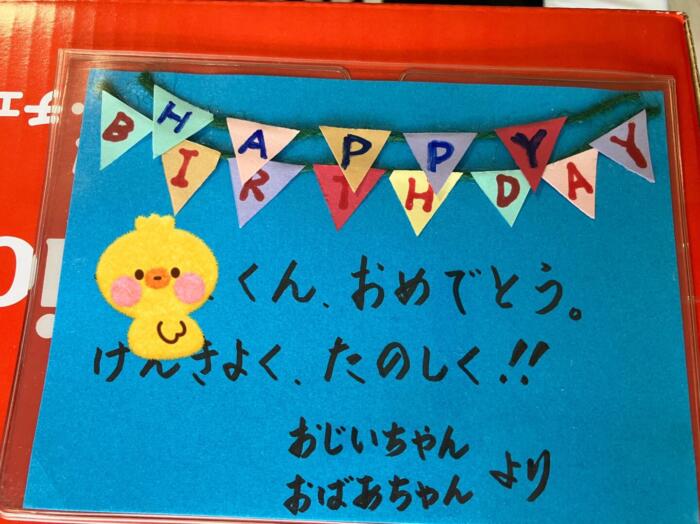 HAPPY
BIRTHDAY
くん、おめでとう。
げんきよく、たのしく!!
おじいちゃん
おばあちゃん より